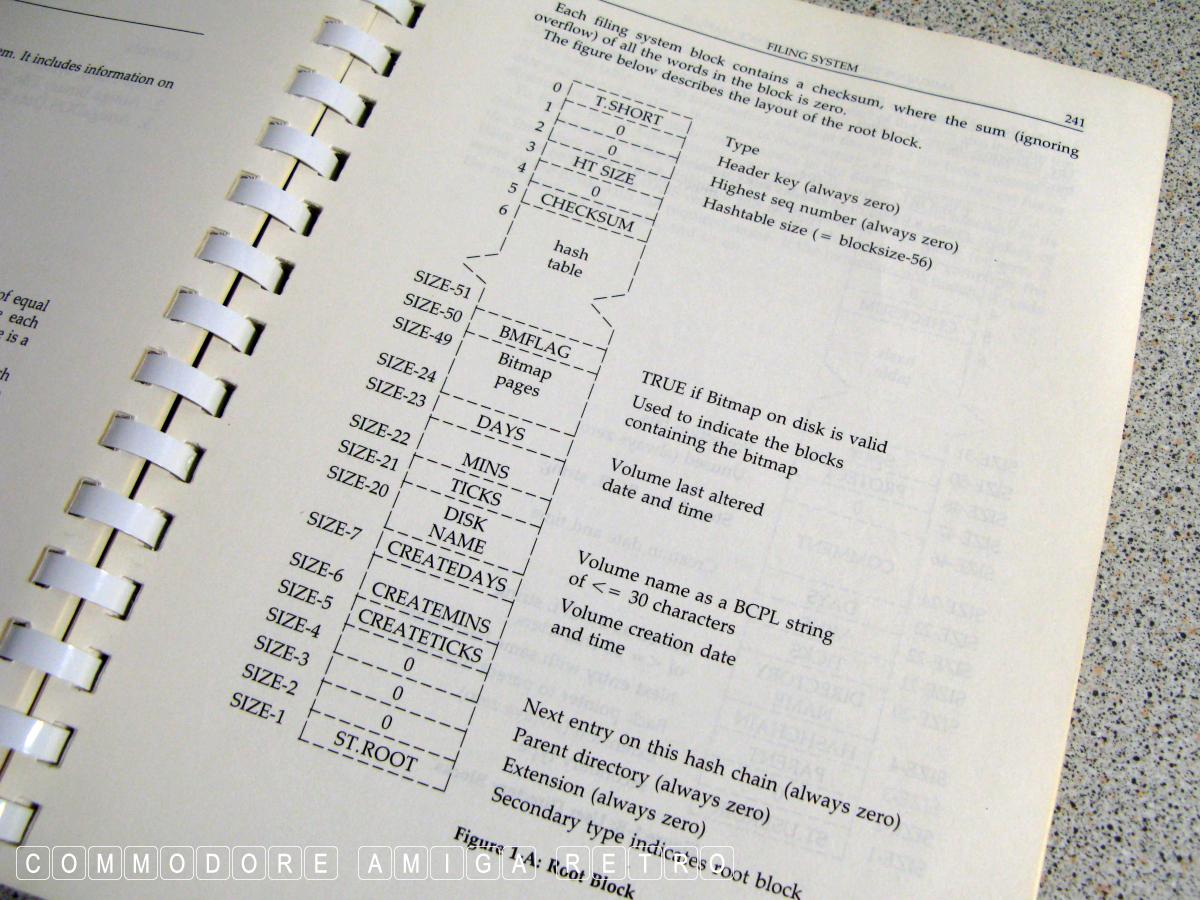 em. It includes information on
of equal
each
e is a
FILING SYSTEM
241
Each filing system block contains a checksum, where the sum (ignoring
overflow) of all the words in the block is zero.
The figure below describes the layout of the root block.
0 T.SHORT Type
1 0 Header key (always zero)
2 0 Highest seq number (always zero)
3 HT SIZE Hashtable size (= blocksize-56)
4 0
5 CHECKSUM
6 hash
table
SIZE-51
SIZE-50 BMFLAG TRUE if Bitmap on disk is valid
SIZE-49 Bitmap Used to indicate the blocks
pages containing the bitmap
SIZE-24
SIZE-23 DAYS Volume last altered
date and time
SIZE-22 MINS
SIZE-21 TICKS
SIZE-20 DISK Volume name as a BCPL string
NAME of <= 30 characters
SIZE-7 CREATEDAYS Volume creation date
and time
SIZE-6 CREATEMINS
SIZE-5 CREATETICKS
SIZE-4 0 Next entry on this hash chain (always zero)
SIZE-3 0 Parent directory (always zero)
SIZE-2 0 Extension (always zero)
SIZE-1 ST.ROOT Secondary type indicates root block
Figure 1-A: Root Block
COMMODORE AMIGA RETRO